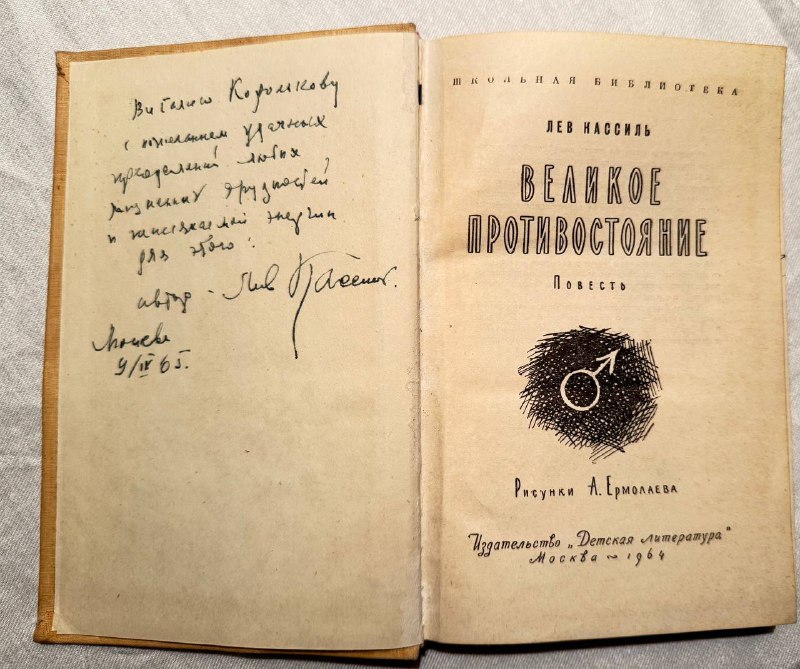 Виталию Королькову
с пожеланием удачных
преодолений любых
жизненных трудностей
и неиссякаемой энергии
для этого!
автор - Лев Кассиль.
Москва
9/IV 65.
ШКОЛЬНАЯ БИБЛИОТЕКА
ЛЕВ КАССИЛЬ
ВЕЛИКОЕ
ПРОТИВОСТОЯНИЕ
Повесть
Рисунки А. Ермолаева
Издательство „Детская литература“
Москва ~ 1964